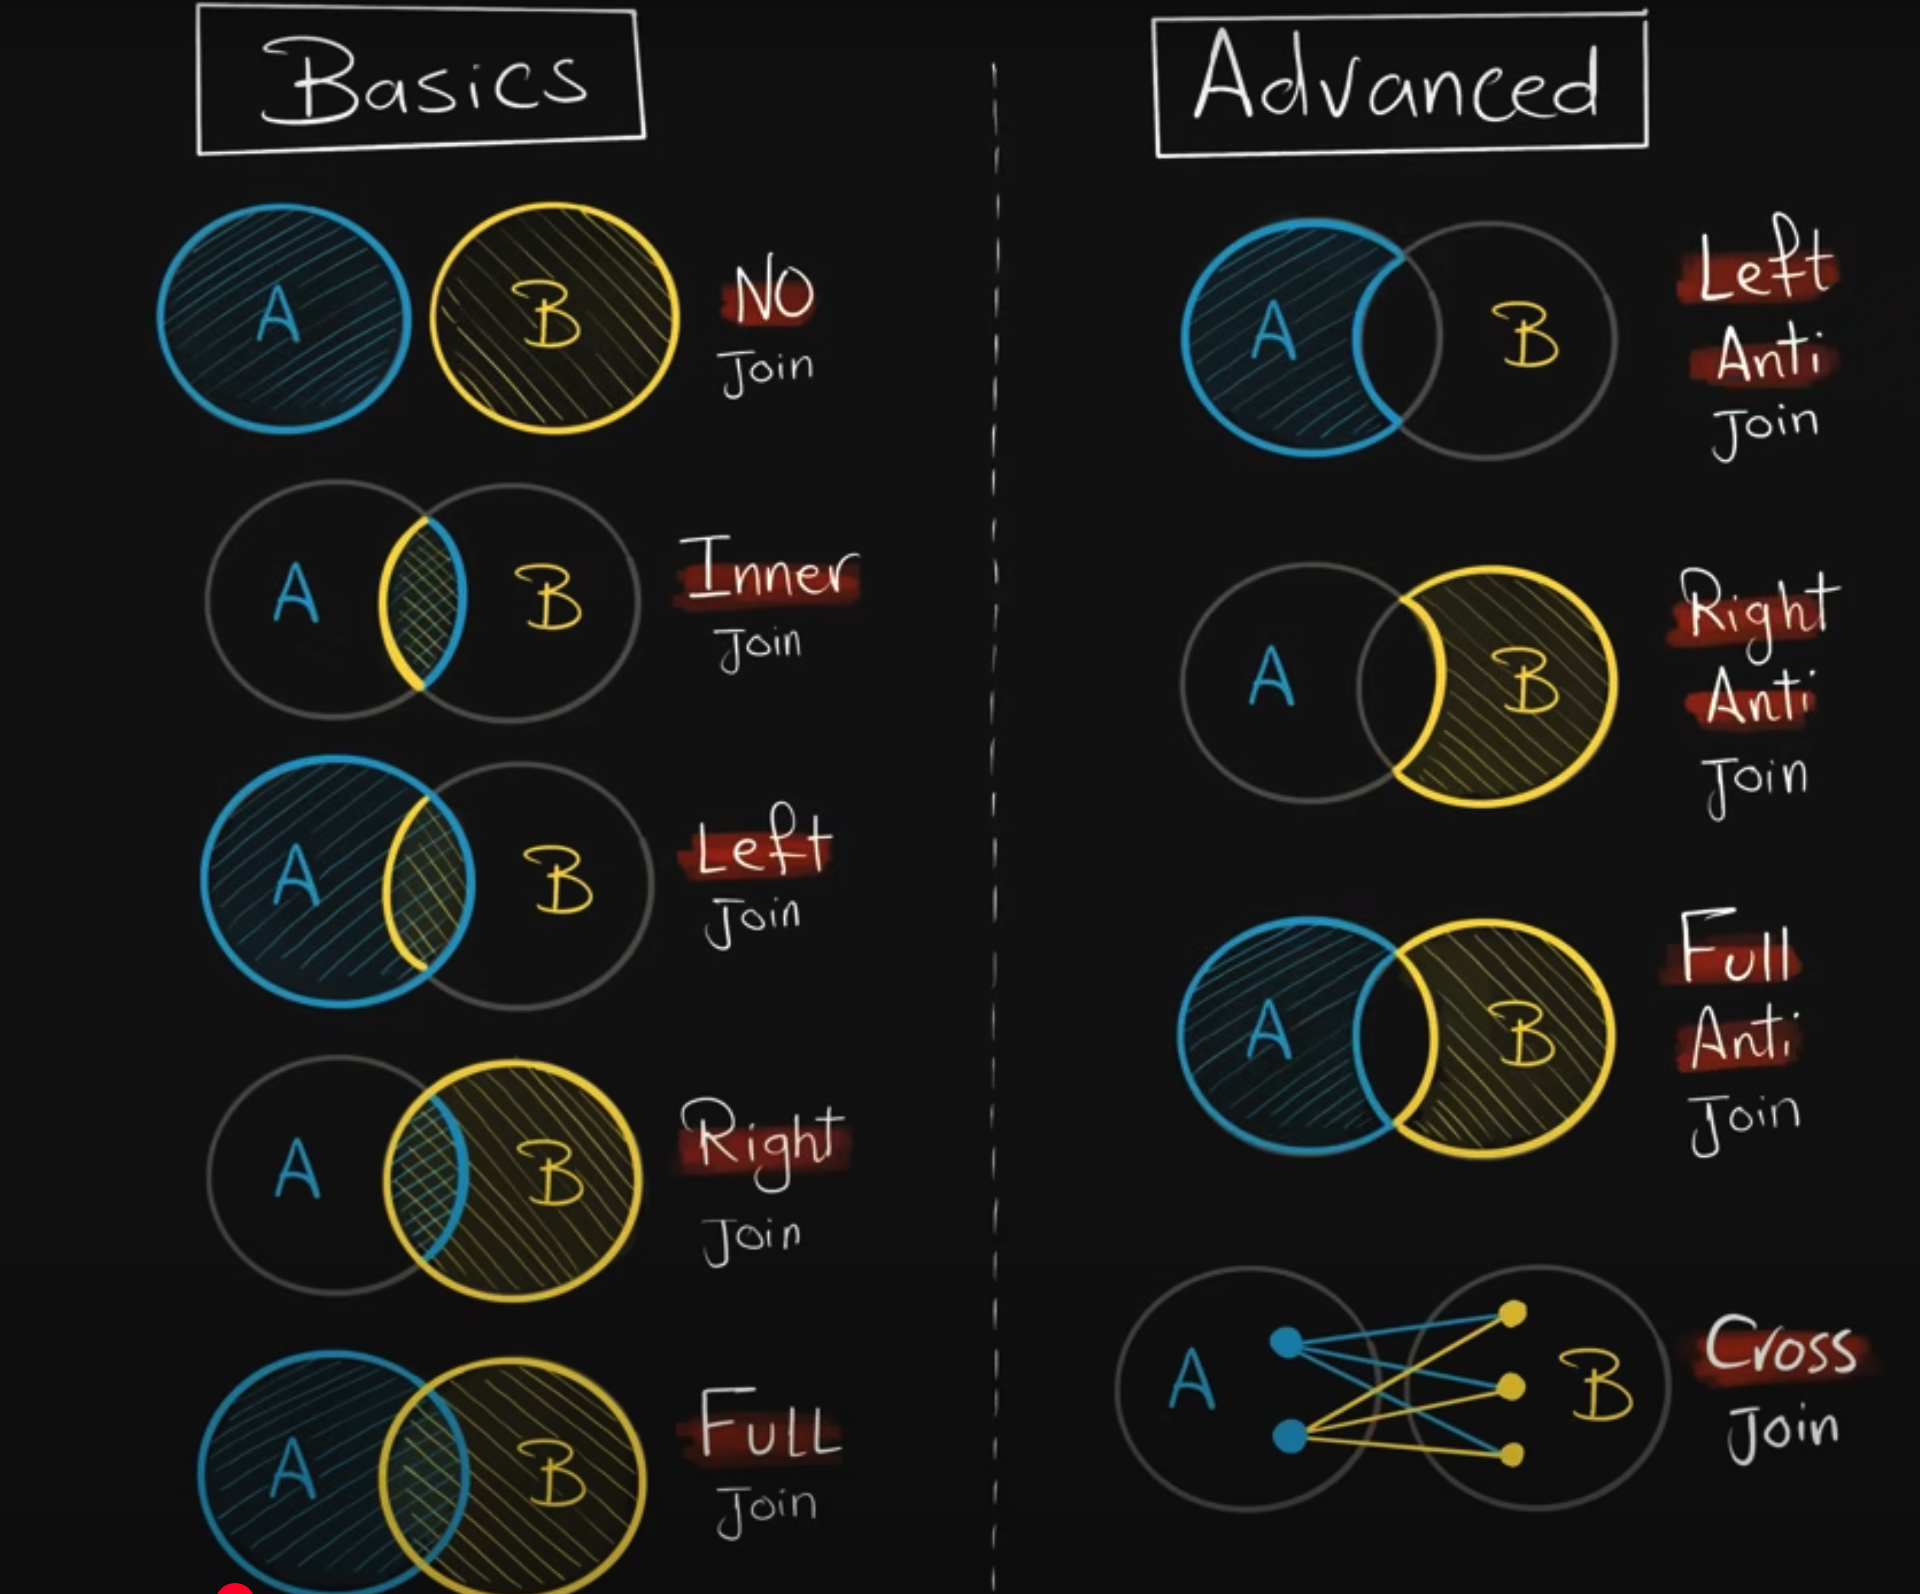 Basics
A B NO
Join
A B Inner
Join
A B Left
Join
A B Right
Join
A B FULL
Join
Advanced
A B Left
Anti
Join
A B Right
Anti
Join
A B Full
Anti
Join
A B Cross
Join